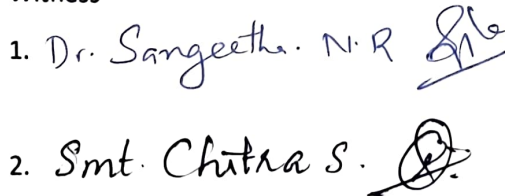 1. Dr. Sangeetha. N.R
2. Smt. Chitra S.